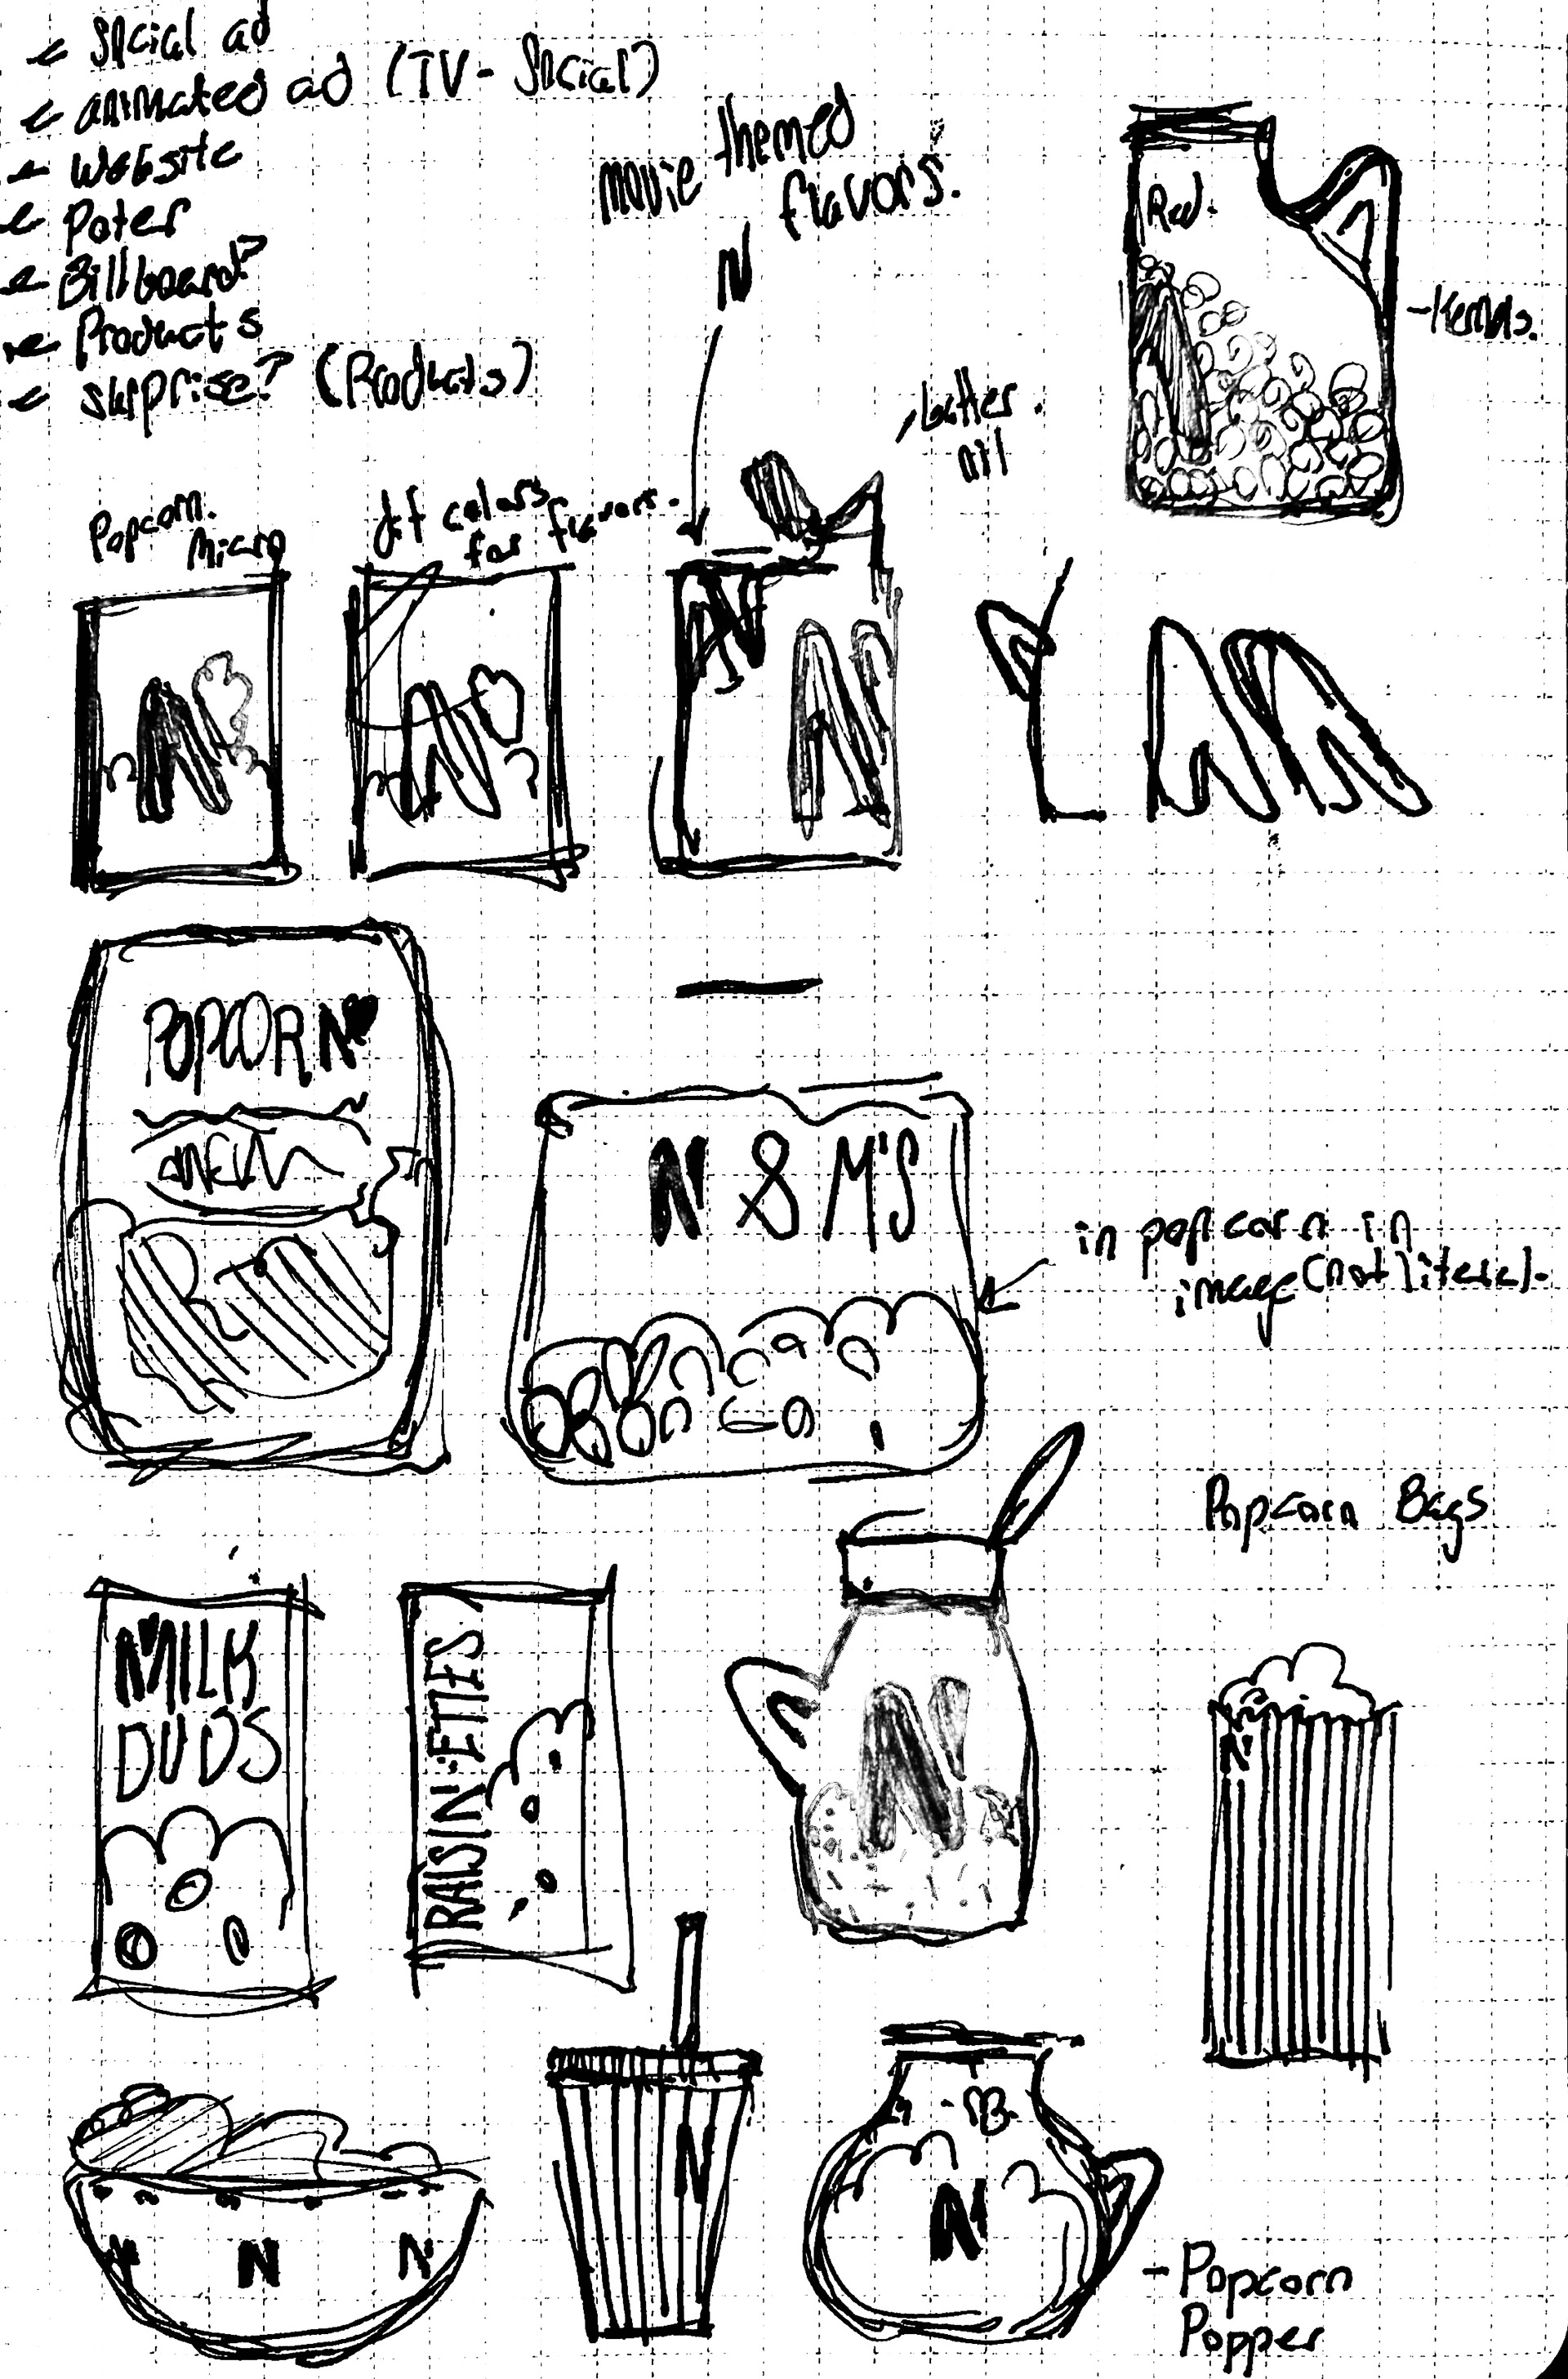 social ad
animated ad (TV - Social)
website
Poter
Billboard?
Products
surprise? (Products)
movie themed
flavors.
N
Red.
-Kernals.
butter
oil
Popcorn.
Micro
dif colors
for flavors.
N
N
N
N
POPCORN
RTM
N & M'S
in popcorn in
image (not literal).
Popcorn Bags
MILK
DUDS
RAISIN·ETTES
N
N
N
N
N
N
- Popcorn
Popper